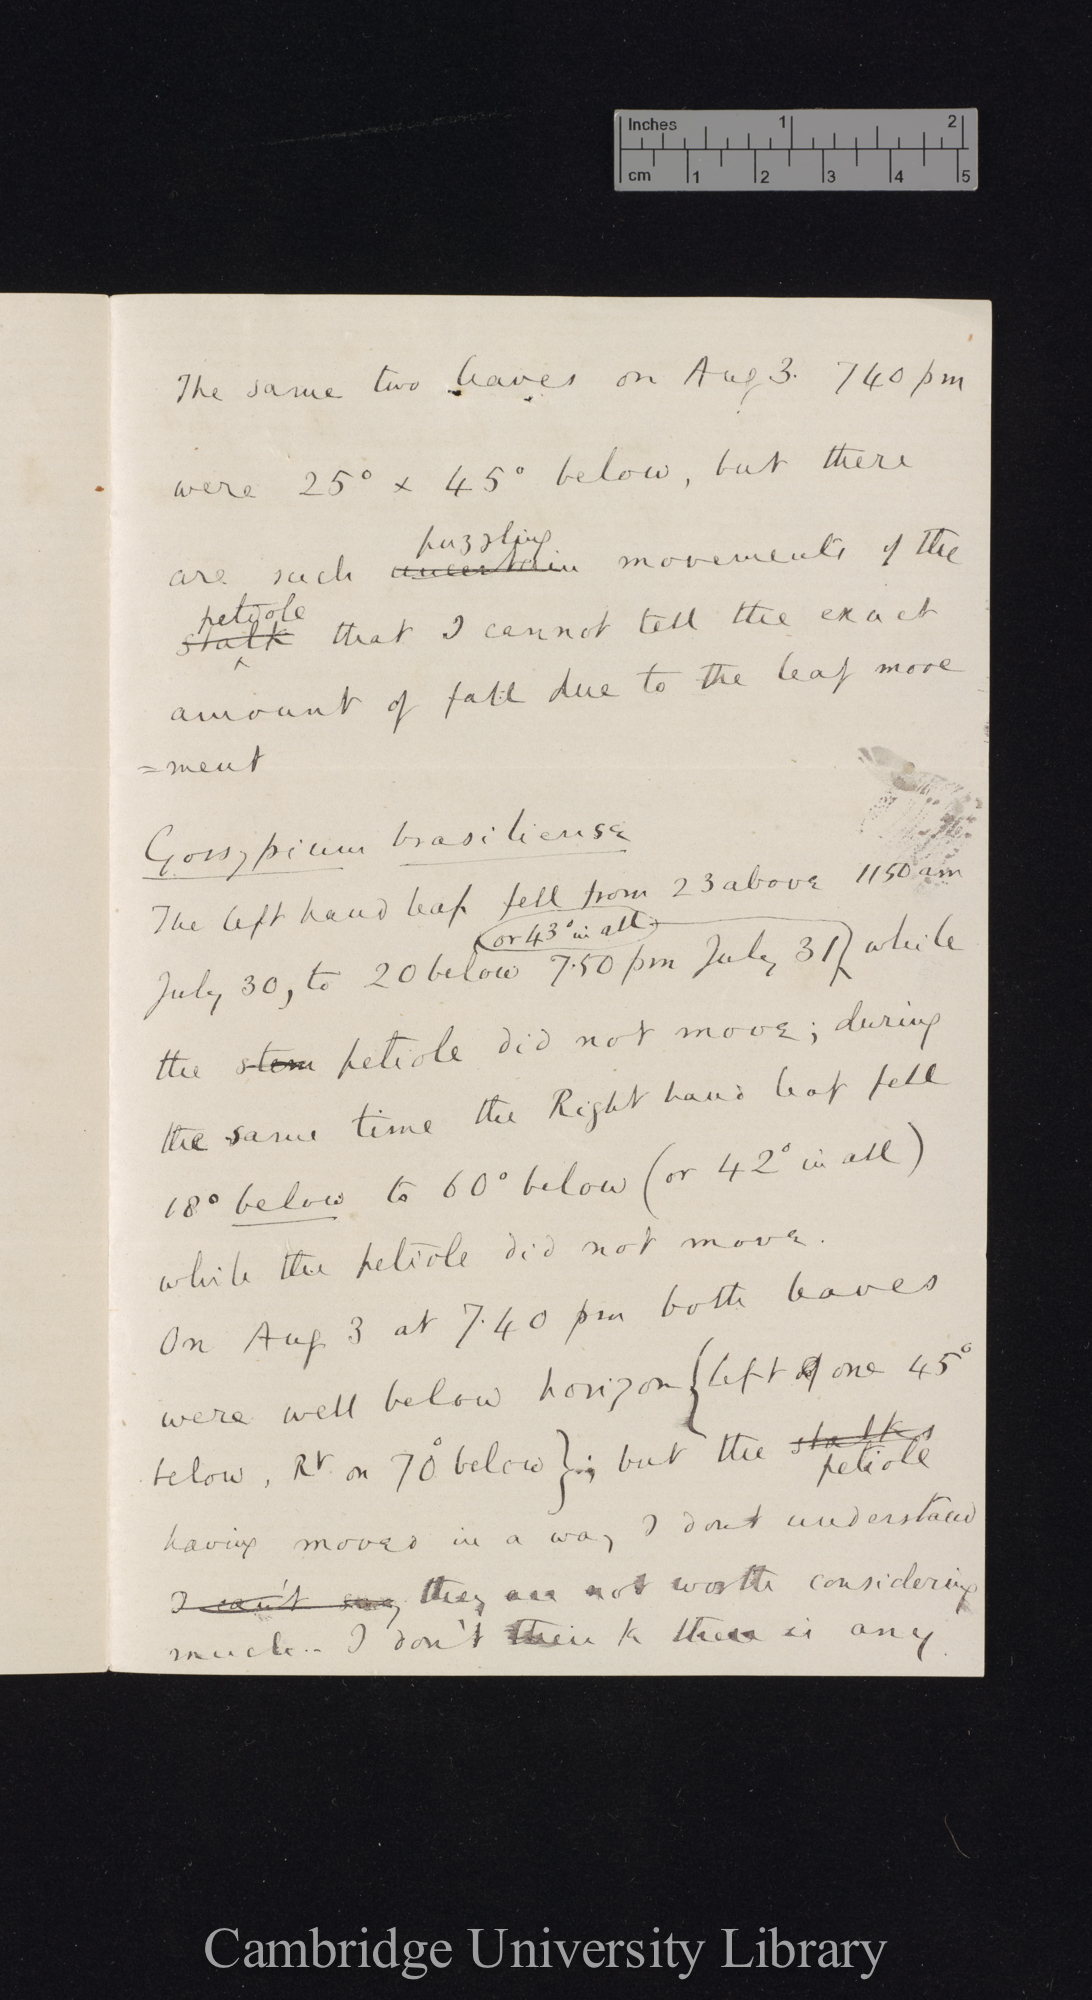 Inches 1 2
cm 1 2 3 4 5
The same two leaves on Aug 3. 740 pm
were 25° × 45° below, but there
puzzling
are such uncertain movements of the
petiole
stalk that I cannot tell the exact
amount of fall due to the leaf move
=ment
Gossypium brasiliense
The left hand leaf fell from 23 above 1150 am
(or 43° in all)
July 30, to 20 below 7.50 pm July 31) while
the stem petiole did not move; during
the same time the Right hand leaf fell
18° below to 60° below (or 42° in all)
while the petiole did not move.
On Aug 3 at 7.40 pm both leaves
were well below horizon {left one 45°
below, Rt on 70° below}; but the stalks
petiole
having moved in a way I dont understand
I can't say they are not worth considering
much.. I don't think there is any
Cambridge University Library